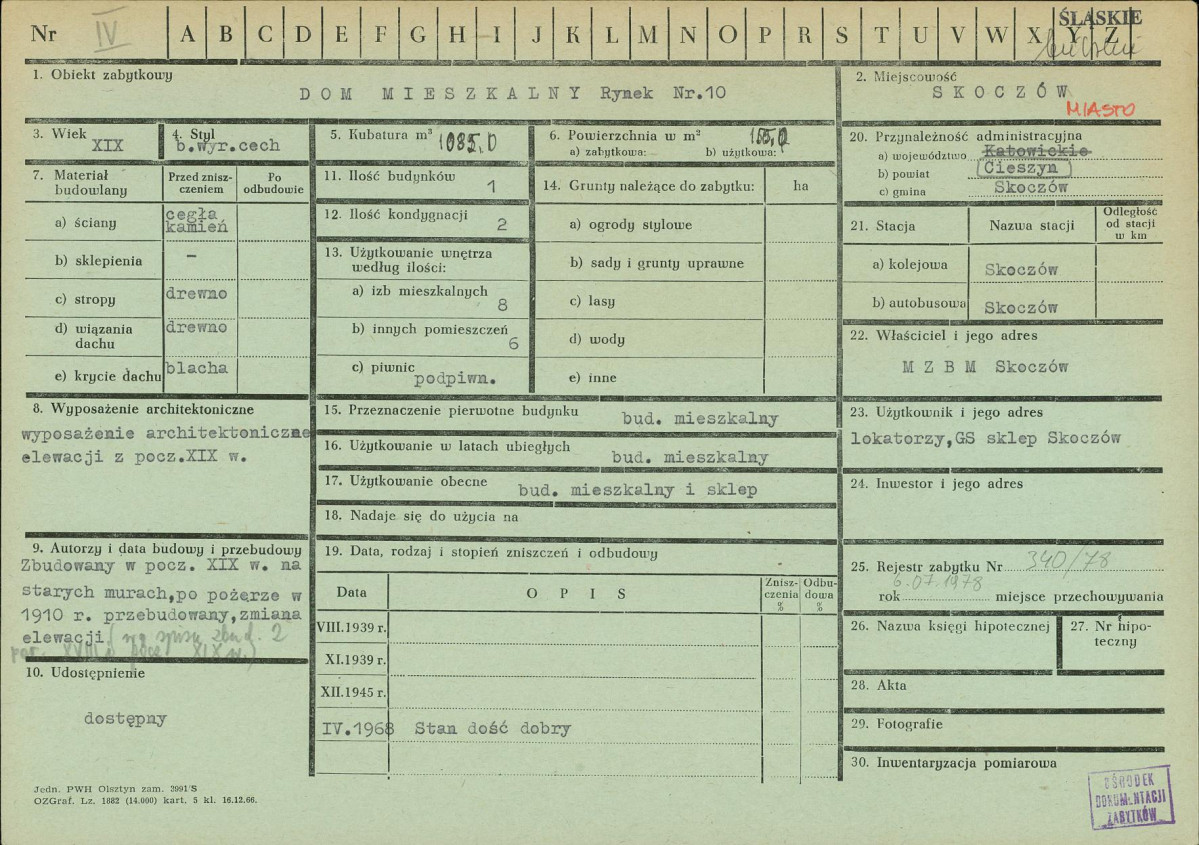 Nr IV A B C D E F G H I J K L M N O P R S T U V W X Y Z
ŚLĄSKIE
1. Obiekt zabytkowy
DOM MIESZKALNY Rynek Nr.10
2. Miejscowość
SKOCZÓW
MIASTO
3. Wiek
XIX
4. Styl
b.wyr.cech
5. Kubatura m³ 1085,0
6. Powierzchnia w m²
a) zabytkowa: b) użytkowa:
7. Materiał budowlany
Przed zniszczeniem
Po odbudowie
a) ściany cegła kamień
b) sklepienia –
c) stropy drewno
d) wiązania dachu drewno
e) krycie dachu blacha
8. Wyposażenie architektoniczne
wyposażenie architektoniczne
elewacji z pocz.XIX w.
9. Autorzy i data budowy i przebudowy
Zbudowany w pocz. XIX w. na
starych murach,po pożarze w
1910 r. przebudowany,zmiana
elewacji (wg spisu zbud. 2
XVIII pocz XIX w.)
10. Udostępnienie
dostępny
11. Ilość budynków 1
12. Ilość kondygnacji 2
13. Użytkowanie wnętrza
według ilości:
a) izb mieszkalnych 8
b) innych pomieszczeń 6
c) piwnic podpiwn.
14. Grunty należące do zabytku: ha
a) ogrody stylowe
b) sady i grunty uprawne
c) lasy
d) wody
e) inne
15. Przeznaczenie pierwotne budynku bud. mieszkalny
16. Użytkowanie w latach ubiegłych bud. mieszkalny
17. Użytkowanie obecne bud. mieszkalny i sklep
18. Nadaje się do użycia na
19. Data, rodzaj i stopień zniszczeń i odbudowy
Data OPIS Zniszczenia % Odbudowa %
VIII.1939 r.
XI.1939 r.
XII.1945 r.
IV.1968 Stan dość dobry
20. Przynależność administracyjna
a) województwo Katowickie
b) powiat Cieszyn
c) gmina Skoczów
21. Stacja Nazwa stacji Odległość od stacji w km
a) kolejowa Skoczów
b) autobusowa Skoczów
22. Właściciel i jego adres
MZBM Skoczów
23. Użytkownik i jego adres
lokatorzy,GS sklep Skoczów
24. Inwestor i jego adres
25. Rejestr zabytku Nr 340/78
rok 6.07.1978 miejsce przechowywania
26. Nazwa księgi hipotecznej
27. Nr hipoteczny
28. Akta
29. Fotografie
30. Inwentaryzacja pomiarowa
Jedn. PWH Olsztyn zam. 3991/S
OZGraf. Lz. 1882 (14.000) kart. 5 kl. 16.12.66.
OŚRODEK
DOKUMENTACJI
ZABYTKÓW